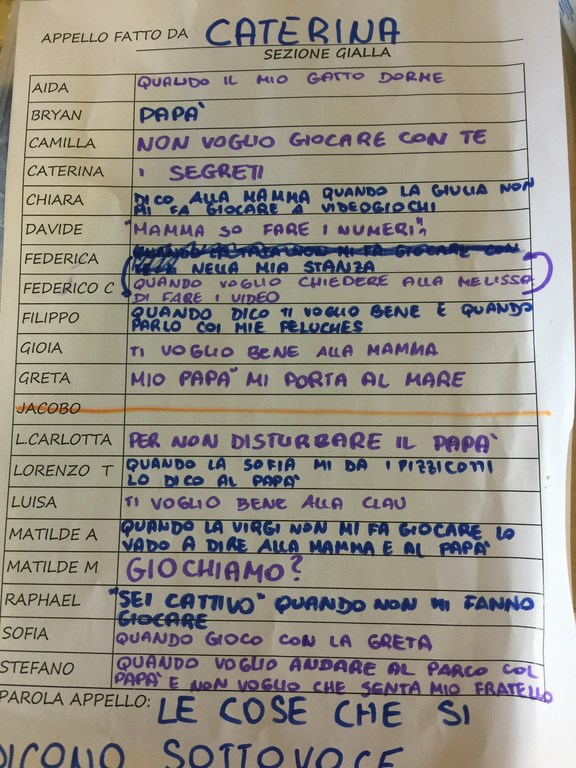 APPELLO FATTO DA CATERINA
SEZIONE GIALLA
AIDA QUANDO IL MIO GATTO DORME
BRYAN PAPA'
CAMILLA NON VOGLIO GIOCARE CON TE
CATERINA I SEGRETI
CHIARA DICO ALLA MAMMA QUANDO LA GIULIA NON
MI FA GIOCARE A VIDEOGIOCHI
DAVIDE "MAMMA SO FARE I NUMERI"
FEDERICA NELLA MIA STANZA
FEDERICO C QUANDO VOGLIO CHIEDERE ALLA MELISSA
DI FARE I VIDEO
FILIPPO QUANDO DICO TI VOGLIO BENE E QUANDO
PARLO COI MIE PELUCHES
GIOIA TI VOGLIO BENE ALLA MAMMA
GRETA MIO PAPA' MI PORTA AL MARE
JACOBO
L.CARLOTTA PER NON DISTURBARE IL PAPA'
LORENZO T QUANDO LA SOFIA MI DA I PIZZICOTTI
LO DICO AL PAPA'
LUISA TI VOGLIO BENE ALLA CLAU
MATILDE A QUANDO LA VIRGI NON MI FA GIOCARE LO
VADO A DIRE ALLA MAMMA E AL PAPA'
MATILDE M GIOCHIAMO?
RAPHAEL "SEI CATTIVO" QUANDO NON MI FANNO
GIOCARE
SOFIA QUANDO GIOCO CON LA GRETA
STEFANO QUANDO VOGLIO ANDARE AL PARCO COL
PAPA' E NON VOGLIO CHE SENTA MIO FRATELLO
PAROLA APPELLO: LE COSE CHE SI
DICONO SOTTOVOCE